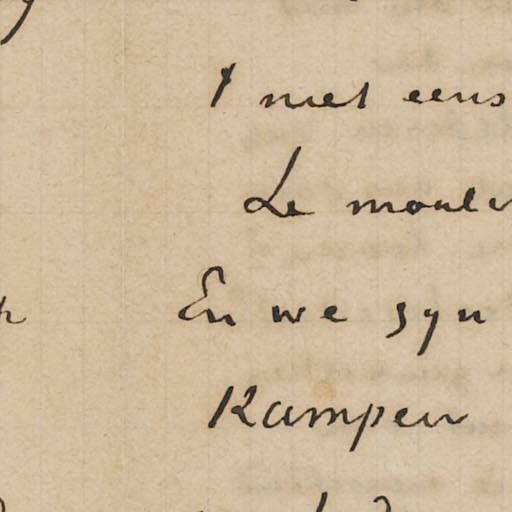 't niet eens
Le moulin
En we zyn
Kampen